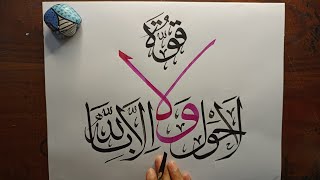 لا حول ولا قوة الا بالله